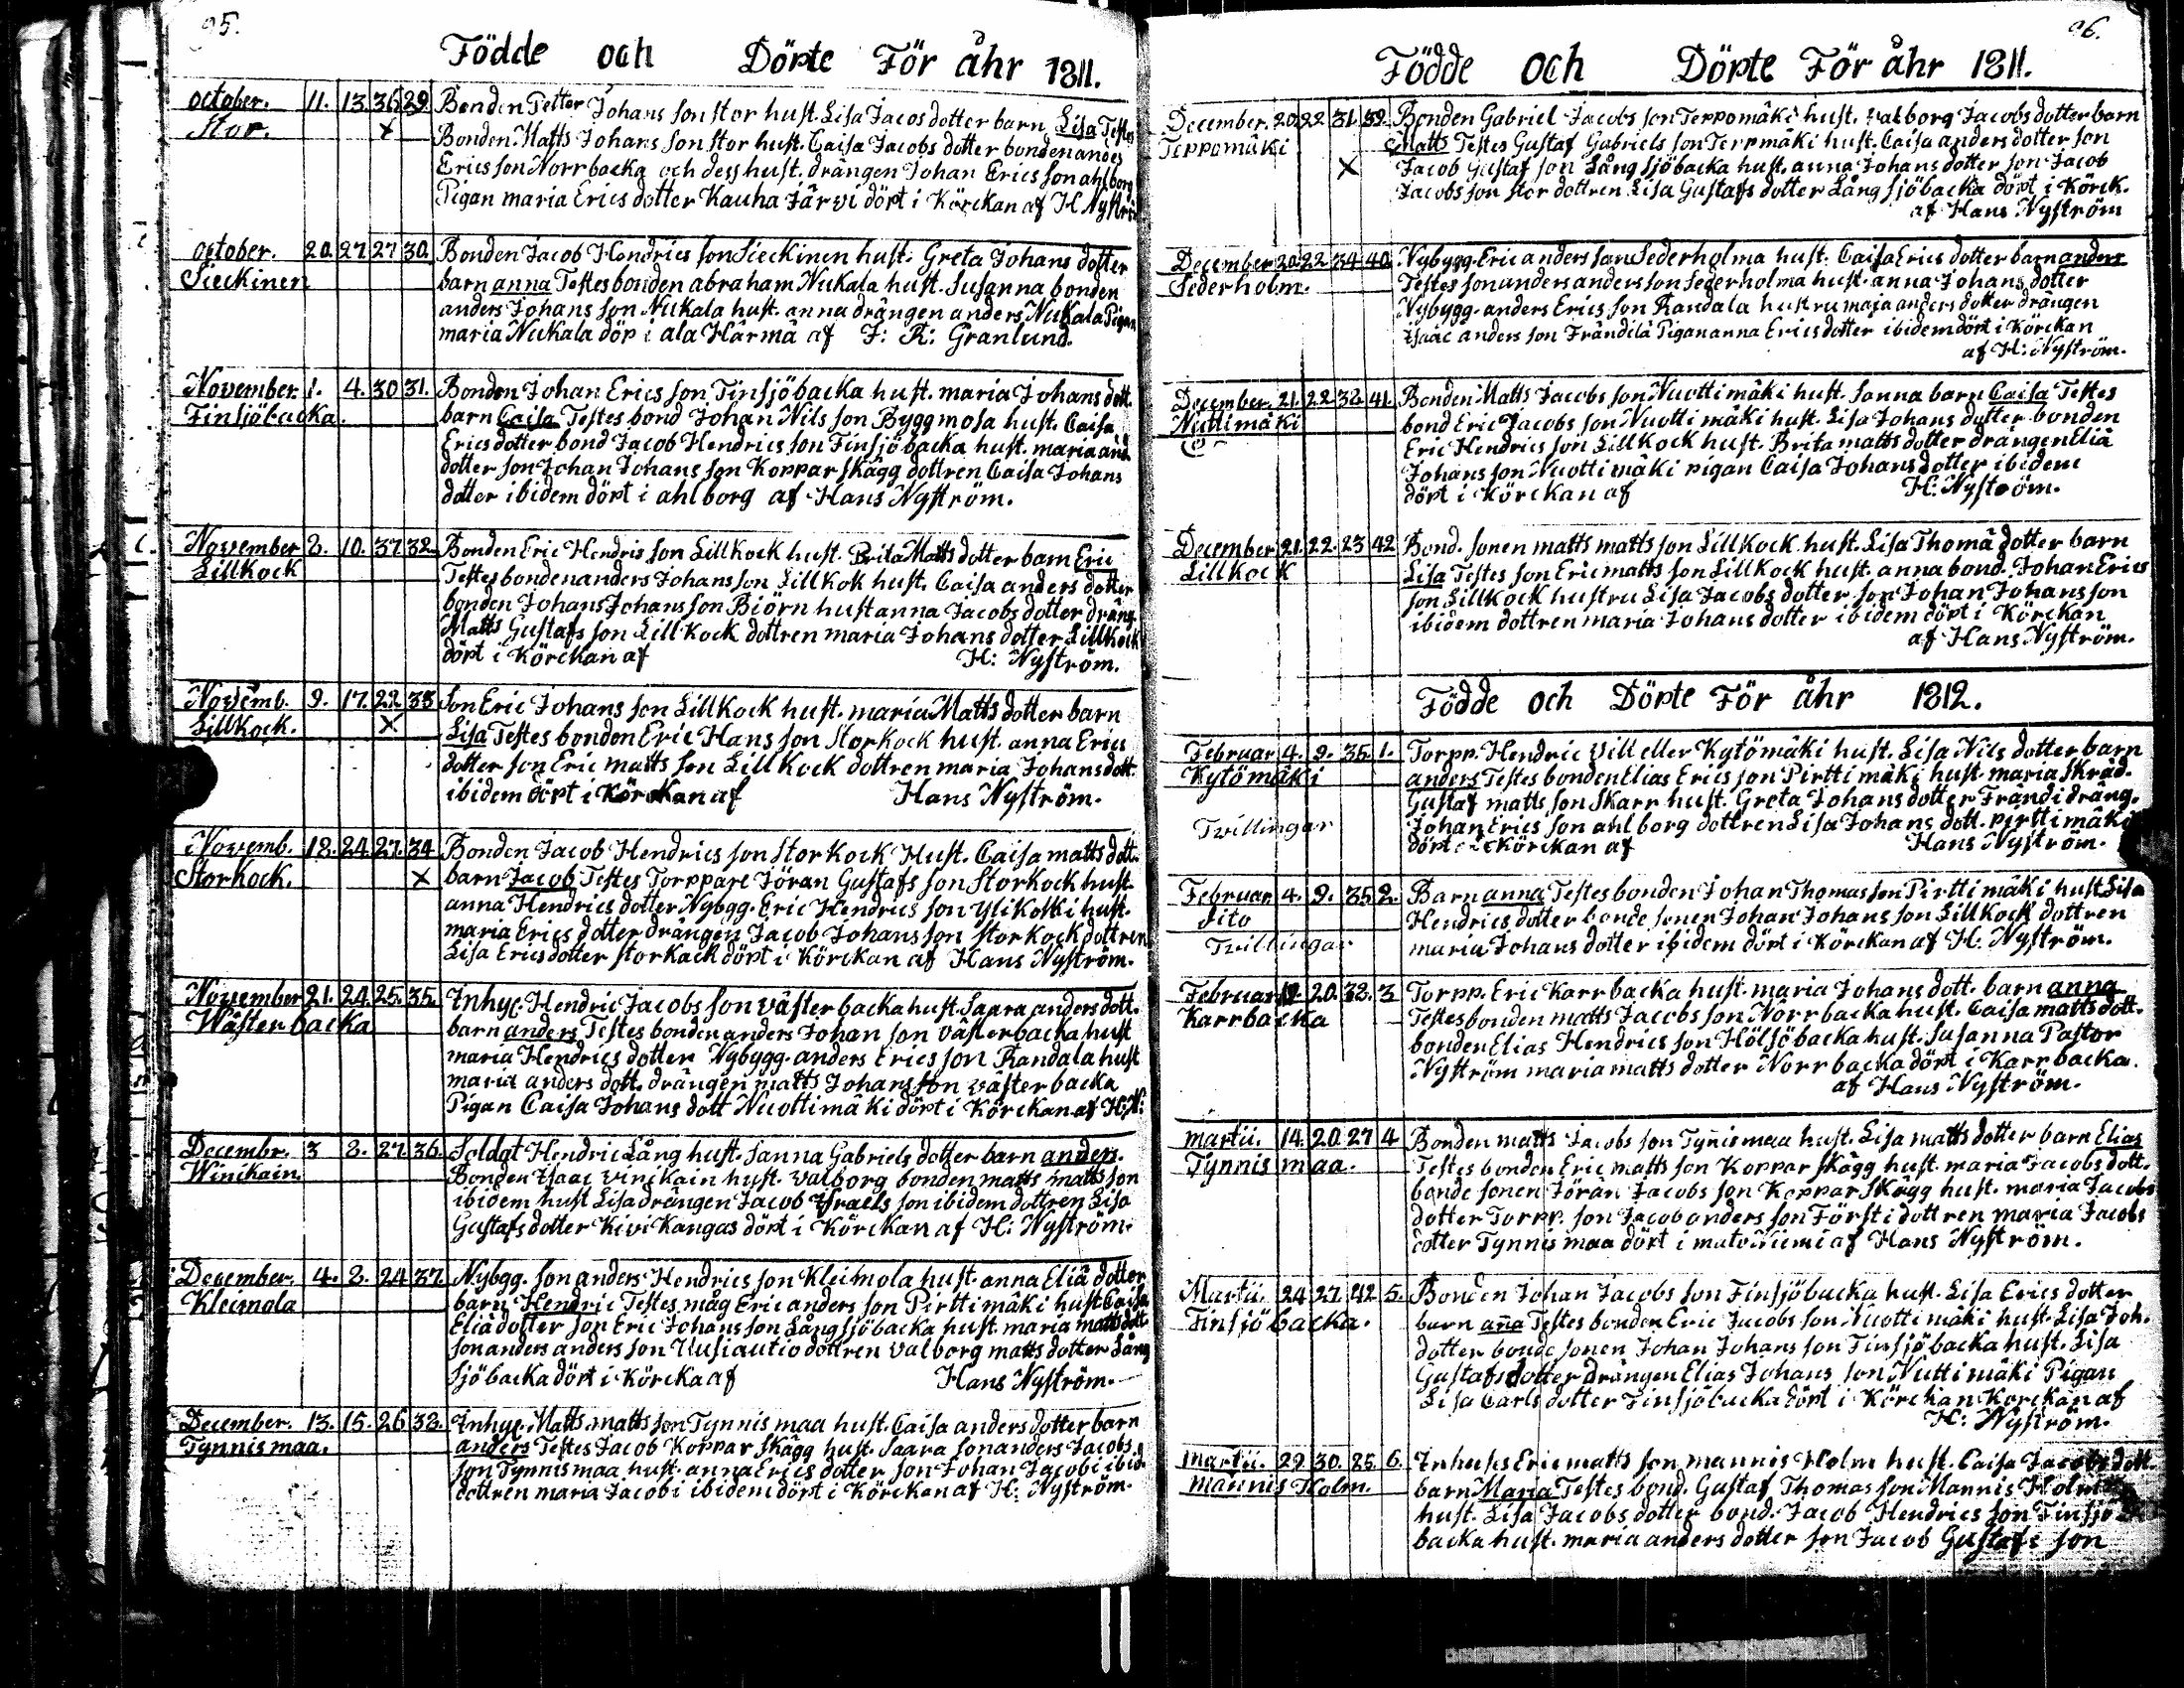 95.
Födde och Döpte För åhr 1811.
october. 11. 13. 36 29. Bonden Petter Johans son stor hust. Lisa Jacos dotter barn Lisa Testes
Stor. x Bonden Matts Johans son stor hust. Caisa Jacobs dotter bonden andes
Erics son Norrbacka och dess hust. drängen Johan Erics son ahlborg
Pigan maria Erics dotter Kauha Järvi döpt i Körckan af H Nyström
october. 20. 27. 27 30. Bonden Jacob Hendrics son Sieckinen hust. Greta Johans dotter
Sieckinen barn anna Testes bonden abraham Nukala hust. Susanna bonden
anders Johans son Nukala hust. anna drängen anders Nukala Pigan
maria Nukala döp i ala Härmä af J: R: Granlund.
November 1. 4. 30 31. Bonden Johan Erics son Finsjöbacka hust. maria Johans dott.
Finsjöbacka. barn Caisa Testes bond Johan Nils son Byggmosa hust. Caisa
Erics dotter bond Jacob Hendrics son Finsjöbacka hust. maria and
dotter son Johan Johans son Kopparskägg dottren Caisa Johans
dotter ibidem döpt i ahlborg af Hans Nyström.
November 8. 10. 37 32. Bonden Eric Hendris son Lillkock hust. Brita Matts dotter barn Eric
Lillkock Testes bonden anders Johans son Lillkok hust. Caisa anders dotter
bonden Johans Johans son Biörn hust anna Jacobs dotter dräng.
Matts Gustafs son Lill Kock dottren maria Johans dotter Lillkock
döpt i Körckan af H: Nyström.
Novemb. 9. 17. 22 33 Son Eric Johans son Lillkock hust. maria Matts dotter barn
Lillkock. x Lisa Testes bonden Eric Hans son Storkock hust. anna Erics
dotter son Eric matts son Lill Kock dottren maria Johans dott.
ibidem döpt i Körckan af Hans Nyström.
Novemb. 18. 24. 27. 34 Bonden Jacob Hendrics son Storkock Hust. Caisa matts dott.
Storkock. x barn Jacob Testes Torppare Jöran Gustafs son Storkock hust.
anna Hendrics dotter Nybgg. Eric Hendrics son Ylikolki hust.
maria Erics dotter drängen Jacob Johans son Storkock dottren
Lisa Erics dotter storkack döpt i Körckan af Hans Nyström.
November 21. 24. 25. 35. Inhyc. Hendric Jacobs son västerbacka hust. Saara anders dott.
Wästerbacka barn anders Testes bonden anders Johan son västerbacka hust
maria Hendrics dotter Nybygg. anders Erics son Randala hust
maria anders dott. drängen matts Johans son västerbacka
Pigan Caisa Johans dott Nuottimäki döpt i Körckan af H: N:
Decembr. 3 8. 27. 36. Soldat Hendric Lång hust. Sanna Gabriels dotter barn anders.
Winikain Bonden Isaac vinikain hust. valborg bonden matts matts son
ibidem hust Lisa drängen Jacob Israels son ibidem dottren Lisa
Gustafs dotter Kivikangas döpt i Körckan af H: Nyström.
December. 4. 8. 24 37. Nybgg. son anders Hendrics son Kleimola hust. anna Eliä dotter
Kleimola barn Hendric Testes måg Eric anders son Pirttimäki hust Caisa
Eliä dotter son Eric Johans son Långsjöbacka hust. maria matts dott.
son anders anders son Uusiautio dottren valborg matts dotter Lång
sjöbacka döpt i Körcka af Hans Nyström.
December. 13. 15. 26 38. Inhyc. Matts matts son Tynnismaa hust. Caisa anders dotter barn
Tynnismaa. anders Testes Jacob Kopparskägg hust. Saara son anders Jacobs
son Tynnismaa hust. anna Erics dotter son Johan Jacobi ibid
dottren maria Jacobi ibidem döpt i Körckan af H: Nyström.
96.
Födde och Döpte För åhr 1811.
December. 20. 22 31. 39. Bonden Gabriel Jacobs son Teppomäki hust. valborg Jacobs dotter barn
Teppomäki x Matts Testes Gustaf Gabriels son Teppmäki hust. Caisa anders dotter son
Jacob Gustaf son Långsjöbacka hust. anna Johans dotter son Jacob
Jacobs son stor dottren Lisa Gustafs dotter Långsjöbacka döpt i Körck.
af Hans Nyström
December 20. 22 34 40. Nybygg. Eric anders son Sederholma hust. Caisa Erics dotter barn anders
Sederholm. Testes son anders anders son Sederholma hust. anna Johans dotter
Nybygg. anders Erics son Randala hustru maja anders dotter drängen
Isaac anders son Frändilä Pigan anna Erics dotter ibidem döpt i Körckan
af H: Nyström.
December. 21. 22 38. 41. Bonden Matts Jacobs son Nuottimäki hust. Sanna barn Caisa Testes
Nuttimäki bond Eric Jacobs son Nuottimäki hust. Lisa Johans dotter bonden
Eric Hendrics son Lillkock hust. Brita matts dotter drängen Eliä
Johans son Nuottimäki pigan Caisa Johans dotter ibidem
döpt i Körckan af H: Nyström.
December 21. 22. 23 42 Bond. sonen matts matts son Lillkock hust. Lisa Thomä dotter barn
Lillkock Lisa Testes son Eric matts son Lillkock hust. anna bond. Johan Erics
son Lillkock hustru Lisa Jacobs dotter son Johan Johans son
ibidem dottren maria Johans dotter ibidem döpt i Körckan
af Hans Nyström.
Födde och Döpte För åhr 1812.
Februar 4. 9. 35. 1. Torpp. Hendric vill eller Kytömäki hust. Lisa Nils dotter barn
Kytömäki anders Testes bonden Elias Erics son Pirttimäki hust. maria Skräd.
Gustaf matts son Skarr hust. Greta Johans dotter Frändi dräng.
Tvillingar Johan Erics son ahlborg dottren Lisa Johans dott. pirttimäki
döpt i Körckan af Hans Nyström.
Februar 4. 9. 35 2. Barn anna Testes bonden Johan Thomas son Pirttimäki hust Lisa
dito Hendrics dotter bonde sonen Johan Johans son Lillkock dottren
Tvillingar maria Johans dotter ibidem döpt i Körckan af H: Nyström.
Februar 19. 20. 32. 3 Torpp. Eric Karrbacka hust. maria Johans dott. barn anna
Karrbacka Testes bonden matts Jacobs son Norrbacka hust. Caisa matts dott.
bonden Elias Hendrics son Hölsöbacka hust. Susanna Pastor
Nyström maria matts dotter Norrbacka döpt i Karrbacka.
af Hans Nyström.
martii. 14. 20. 27 4 Bonden matts Jacobs son Tynismaa hust. Lisa matts dotter barn Elias
Tynnismaa. Testes bonden Eric matts son Kopparskägg hust. maria Jacobs dott.
bonde sonen Jörän Jacobs son Kopparskägg hust. maria Jacobs
dotter Torpp. son Jacob anders son Försti dottren maria Jacobs
dotter Tynnismaa döpt i af Hans Nyström.
Martii. 24 27. 42 5. Bonden Johan Jacobs son Finsjöbacka hust. Lisa Erics dotter
Finsjöbacka. barn aña Testes bonden Eric Jacobs son Nuottimäki hust. Lisa Joh.
dotter bonde sonen Johan Johans son Finsjöbacka hust. Lisa
Gustafs dotter drängen Elias Johans son Nuttimäki Pigan
Lisa Carls dotter Finsjöbacka döpt i Körckan Korckan af
H: Nyström.
martii. 29 30. 25. 6. Inhyses Eric matts son mannis Holm hust. Caisa Jacobs dott.
mannis Holm. barn Maria Testes bond. Gustaf Thomas son Mannis Holm
hust. Lisa Jacobs dotter bond. Jacob Hendrics son Finsjö
backa hust. maria anders dotter son Jacob Gustafs son